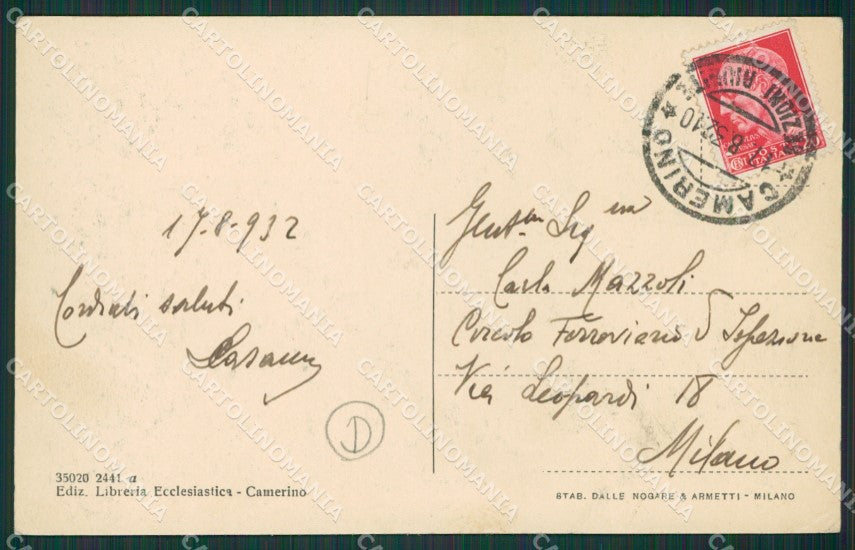 17-8-932
Cordiali saluti
Gent.ma Sig.na
Carla Mazzoli
Circolo Ferroviario Ispezione
Via Leopardi 18
Milano
D
CAMERINO
POSTE ITALIANE
35020 2441 a
Ediz. Libreria Ecclesiastica - Camerino
STAB. DALLE NOGARE & ARMETTI - MILANO
CARTOLINOMANIA